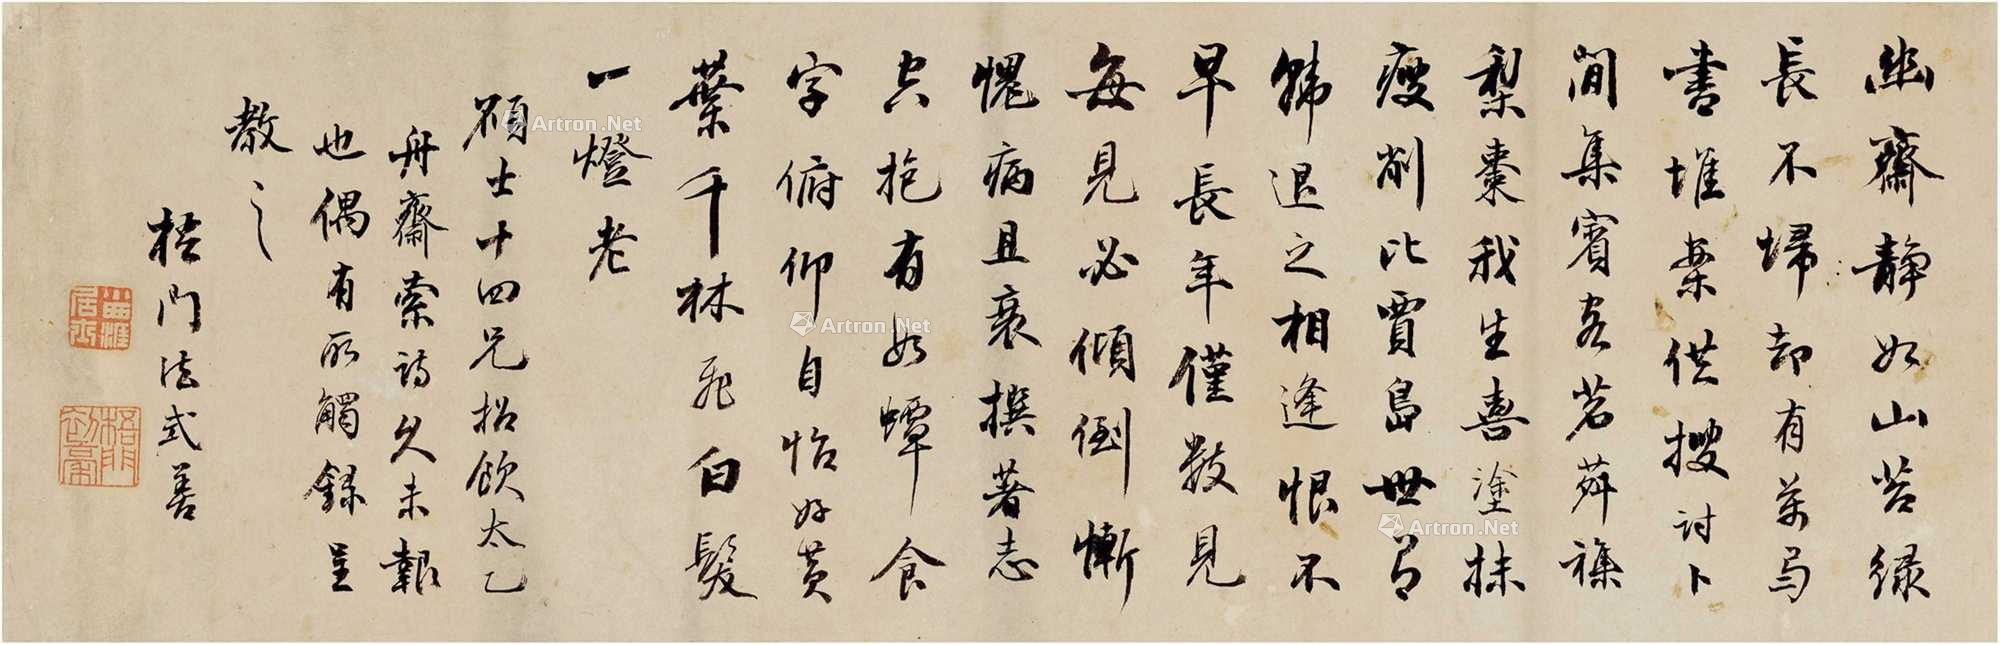 幽齋靜如山苔綠
長不掃却有萬馬
書堆案供搜討卜
間集賓客茗葬襍
梨棗我生喜塗抹
瘦削比賈島世有
韓退之相逢恨不
早長年僅數見
每見必傾倒慚
愧病且衰撰著志
空抱有如蟫食
字俯仰自怡好黃
葉千林飛白髮
一燈老
碩士十四兄招飲太乙
舟齋索詩久未報
也偶有所觸錄呈
教之
梧門法式善
Artron.Net
Artron.Net
Artron.Net
Artron.Net